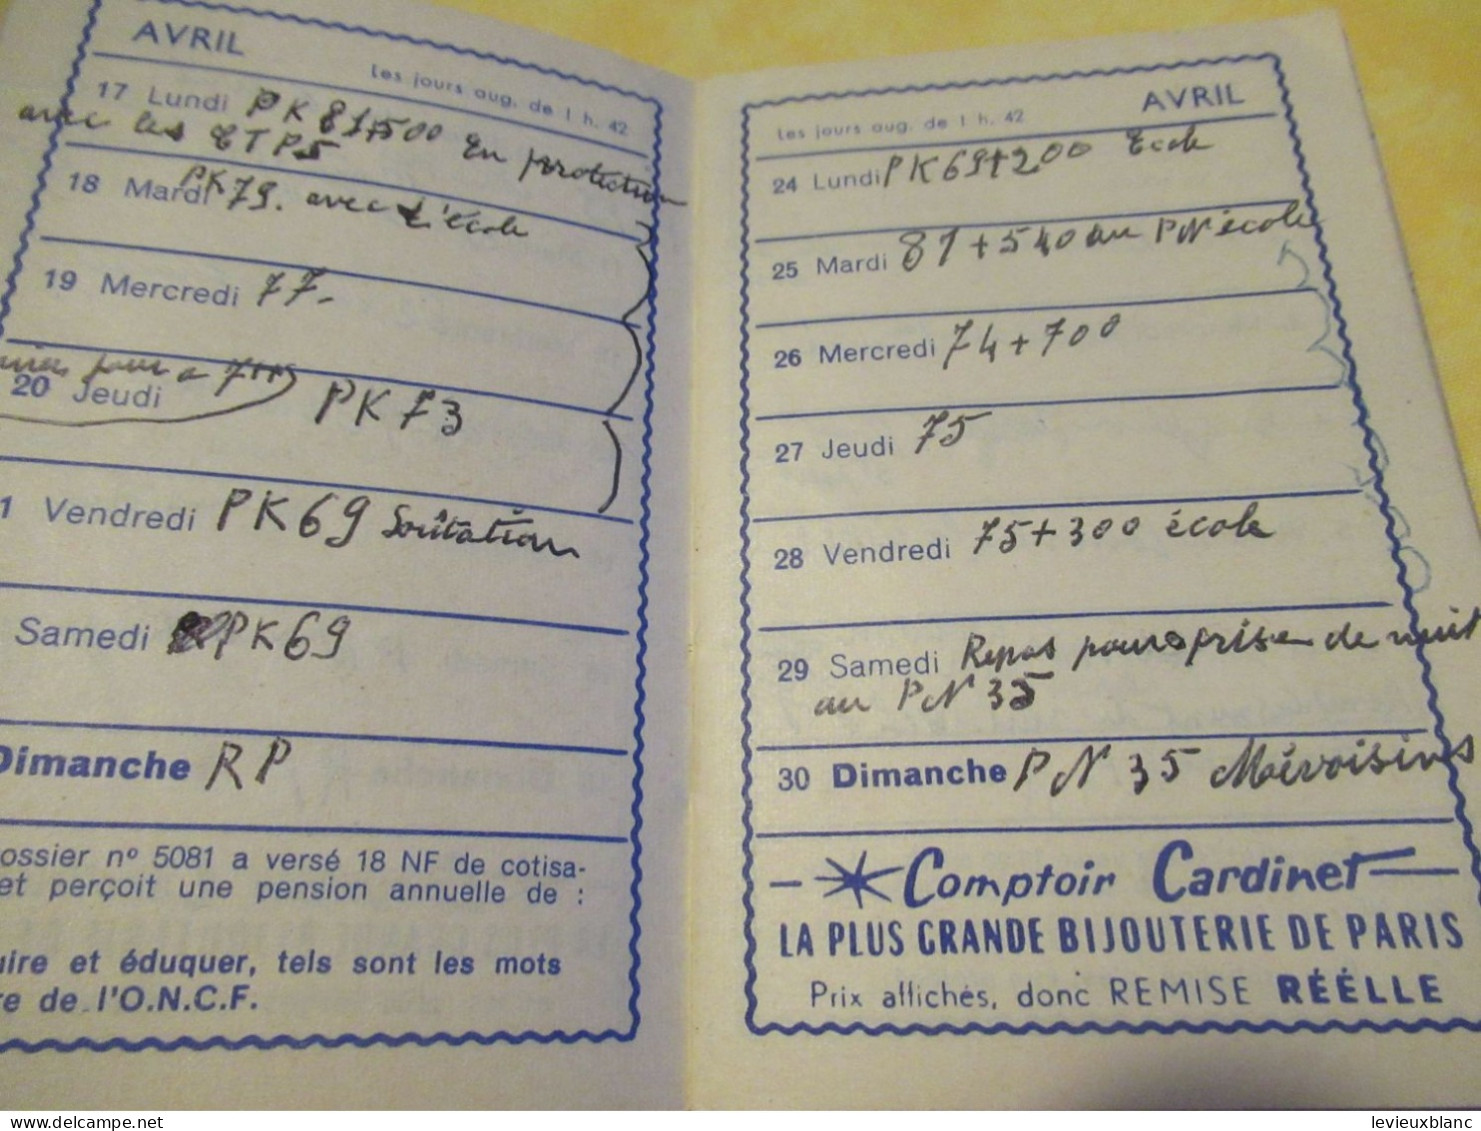 AVRIL
Les jours aug. de 1 h. 42
17 Lundi PK 81+500 en protection
avec les ETPS
18 Mardi PK 79. avec l'école
19 Mercredi 77-
pour a
20 Jeudi PK 73
1 Vendredi PK69
Samedi PK69
Dimanche RP
ossier nº 5081 a versé 18 NF de cotisa-
et perçoit une pension annuelle de :
uire et éduquer, tels sont les mots
re de l'O.N.C.F.
AVRIL
Les jours aug. de 1 h. 42
24 Lundi PK69+200 Ecole
25 Mardi 81+540 au PN école
26 Mercredi 74+700
27 Jeudi 75
28 Vendredi 75+300 école
29 Samedi Repos pour prise de nuit
au PN 35
30 Dimanche PN 35 Mévoisins
Comptoir Cardinet
LA PLUS GRANDE BIJOUTERIE DE PARIS
Prix affichés, donc REMISE RÉÉLLE
levieuxblanc